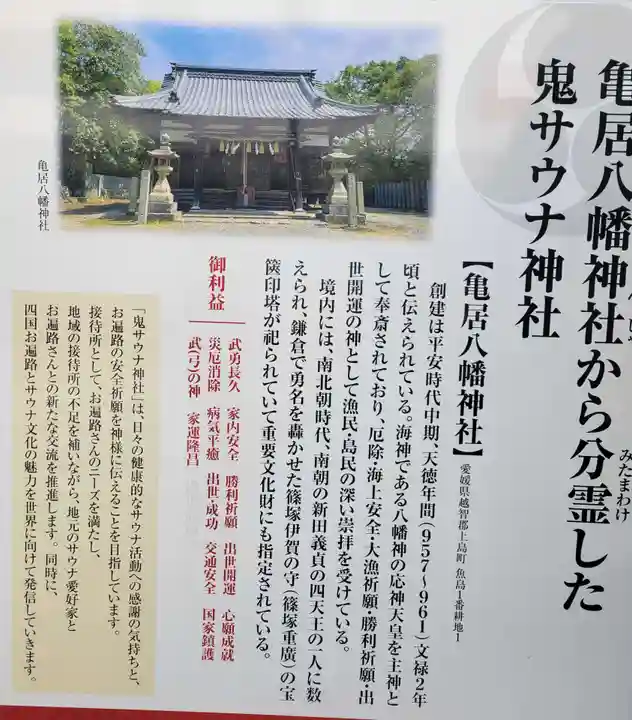 亀居八幡神社から分霊した
みたまわけ
鬼サウナ神社
【亀居八幡神社】
愛媛県越智郡上島町 魚島1番耕地1
創建は平安時代中期、天徳年間(957〜961)文禄2年
頃と伝えられている。海神である八幡神の応神天皇を主神と
して奉斎されており、厄除・海上安全・大漁祈願・勝利祈願・出
世開運の神として漁民・島民の深い崇拝を受けている。
境内には、南北朝時代、南朝の新田義貞の四天王の一人に数
えられ、鎌倉で勇名を轟かせた篠塚伊賀の守(篠塚重廣)の宝
篋印塔が祀られていて重要文化財にも指定されている。
御利益
武勇長久 家内安全 勝利祈願 出世開運 心願成就
災厄消除 病気平癒 出世・成功 交通安全 国家鎮護
武(弓)の神 家運隆昌
亀居八幡神社
「鬼サウナ神社」は、日々の健康的なサウナ活動への感謝の気持ちと、
お遍路の安全祈願を神様に伝えることを目指しています。
接待所として、お遍路さんのニーズを満たし、
地域の接待所の不足を補いながら、地元のサウナ愛好家と
お遍路さんとの新たな交流を推進します。同時に、
四国お遍路とサウナ文化の魅力を世界に向けて発信していきます。